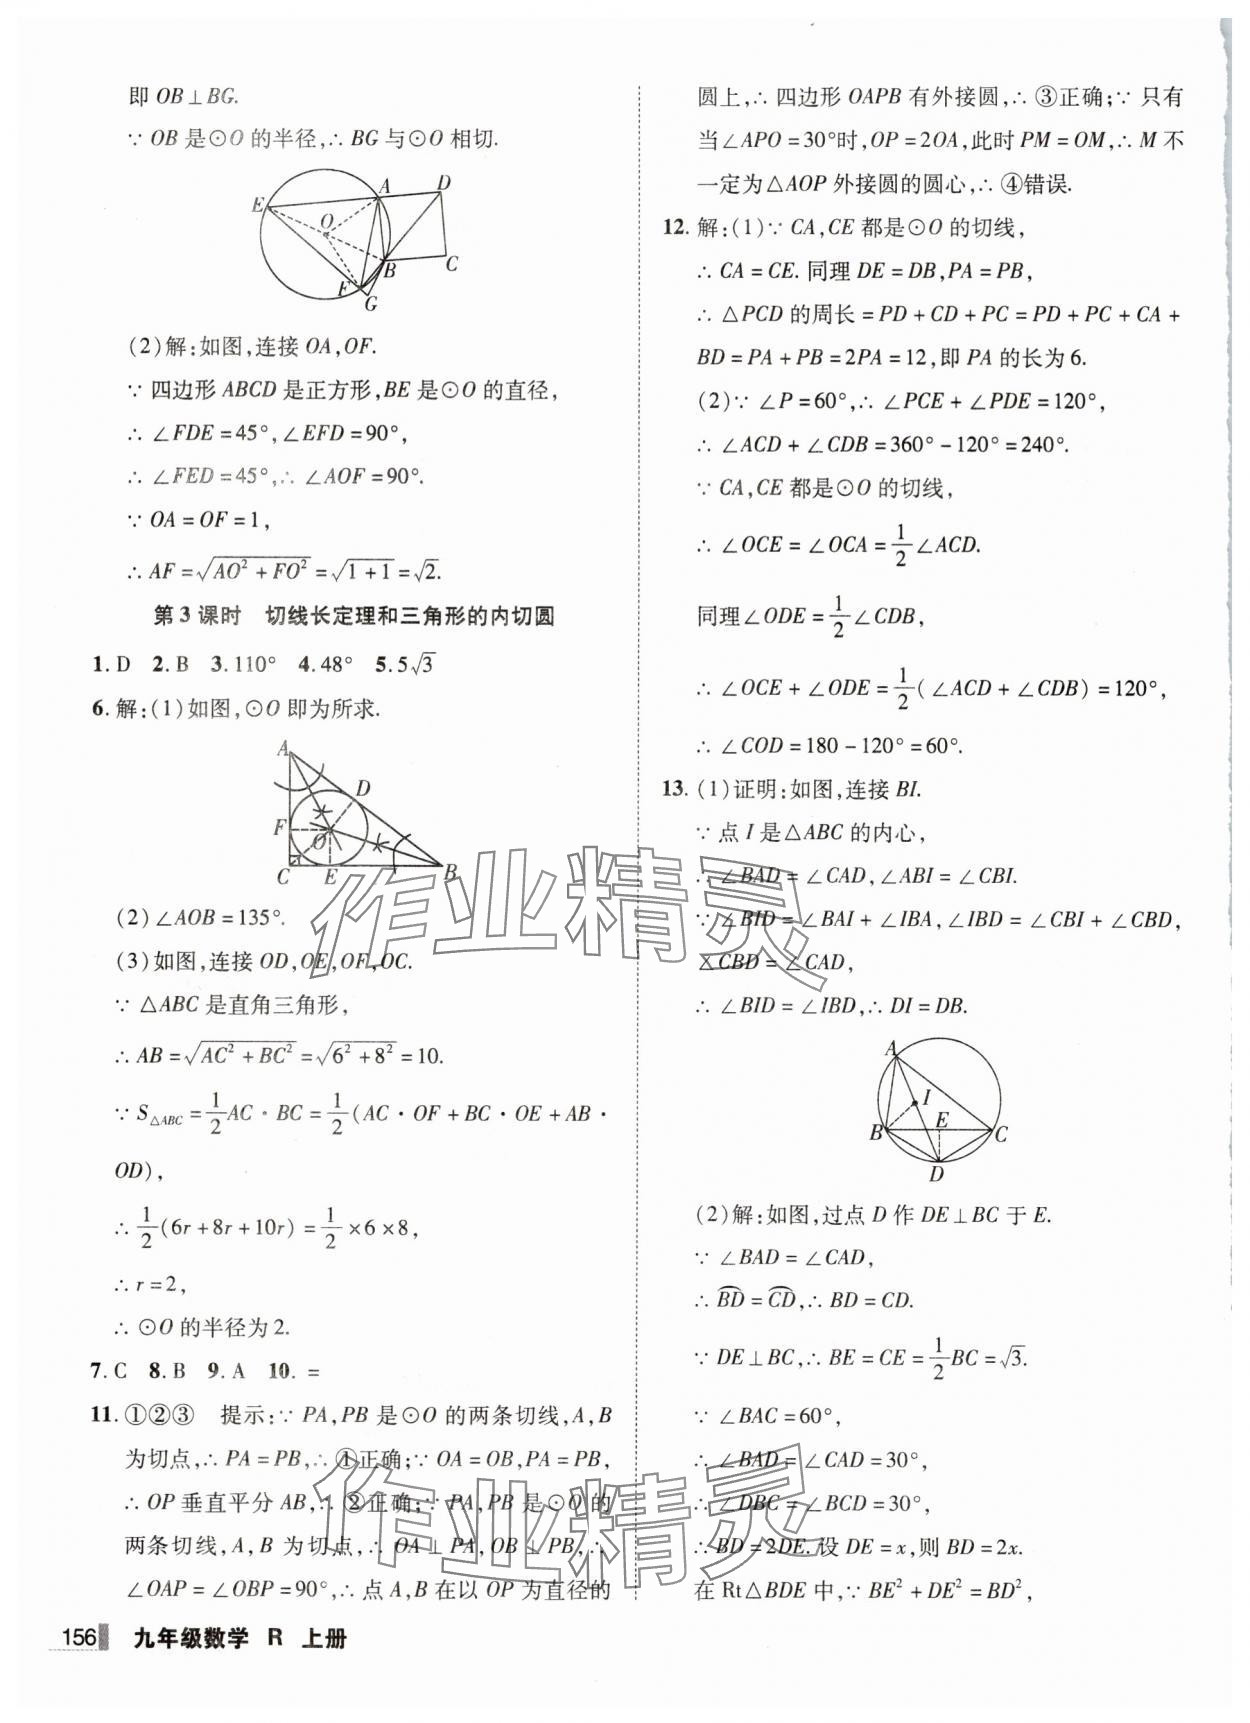 即 OB⊥BG.
∵ OB 是⊙O 的半径,∴ BG 与⊙O 相切.
E A D O B C F G
(2)解:如图,连接 OA,OF.
∵ 四边形 ABCD 是正方形,BE 是⊙O 的直径,
∴ ∠FDE=45°,∠EFD=90°,
∴ ∠FED=45°,∴ ∠AOF=90°.
∵ OA=OF=1,
∴ AF=√(AO²+FO²)=√(1+1)=√2.
第 3 课时 切线长定理和三角形的内切圆
1. D 2. B 3. 110° 4. 48° 5. 5√3
6. 解:(1)如图,⊙O 即为所求.
A D F O C E B
(2)∠AOB=135°.
(3)如图,连接 OD,OE,OF,OC.
∵ △ABC 是直角三角形,
∴ AB=√(AC²+BC²)=√(6²+8²)=10.
∵ S△ABC=1/2AC·BC=1/2(AC·OF+BC·OE+AB·
OD),
∴ 1/2(6r+8r+10r)=1/2×6×8,
∴ r=2,
∴ ⊙O 的半径为 2.
7. C 8. B 9. A 10. =
11. ①②③ 提示:∵ PA,PB 是⊙O 的两条切线,A,B
为切点,∴ PA=PB,∴ ①正确;∵ OA=OB,PA=PB,
∴ OP 垂直平分 AB,∴ ②正确;∵ PA,PB 是⊙O 的
两条切线,A,B 为切点,∴ OA⊥PA,OB⊥PB,∴
∠OAP=∠OBP=90°,∴ 点 A,B 在以 OP 为直径的
156 九年级数学 R 上册
圆上,∴ 四边形 OAPB 有外接圆,∴ ③正确;∵ 只有
当∠APO=30°时,OP=2OA,此时 PM=OM,∴ M 不
一定为△AOP 外接圆的圆心,∴ ④错误.
12. 解:(1)∵ CA,CE 都是⊙O 的切线,
∴ CA=CE. 同理 DE=DB,PA=PB,
∴ △PCD 的周长=PD+CD+PC=PD+PC+CA+
BD=PA+PB=2PA=12,即 PA 的长为 6.
(2)∵ ∠P=60°,∴ ∠PCE+∠PDE=120°,
∴ ∠ACD+∠CDB=360°-120°=240°.
∵ CA,CE 都是⊙O 的切线,
∴ ∠OCE=∠OCA=1/2∠ACD.
同理∠ODE=1/2∠CDB,
∴ ∠OCE+∠ODE=1/2(∠ACD+∠CDB)=120°,
∴ ∠COD=180-120°=60°.
13. (1)证明:如图,连接 BI.
∵ 点 I 是△ABC 的内心,
∴ ∠BAD=∠CAD,∠ABI=∠CBI.
∵ ∠BID=∠BAI+∠IBA,∠IBD=∠CBI+∠CBD,
∠CBD=∠CAD,
∴ ∠BID=∠IBD,∴ DI=DB.
A I B E C D
(2)解:如图,过点 D 作 DE⊥BC 于 E.
∵ ∠BAD=∠CAD,
∴ BD=CD,∴ BD=CD.
∵ DE⊥BC,∴ BE=CE=1/2BC=√3.
∵ ∠BAC=60°,
∴ ∠BAD=∠CAD=30°,
∴ ∠DBC=∠BCD=30°,
∴ BD=2DE. 设 DE=x,则 BD=2x.
在 Rt△BDE 中,∵ BE²+DE²=BD²,
作业精灵
作业精灵